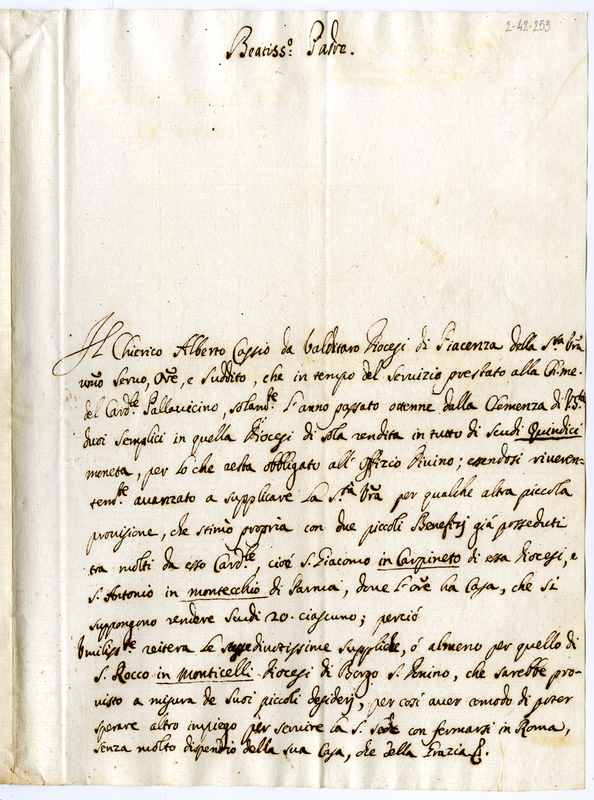 2-42-253
Beatiss.º Padre.
Il Chierico Alberto Cassio da Valditaro Diocesi di Piacenza della S.ta Vra
umo Seruo, Ore, e Suddito, che in tempo del Seruizio prestato alla Ch:me:
del Card.le Pallauicino, solam.te l'anno passato ottenne dalla Clemenza di V.S.tà
duoi Semplici in quella Diocesi di sola rendita in tutto di Scudi Quindici
moneta, per lo che resta obbligato all'Offizio Diuino; essendosi riueren-
tem.te auanzato a supplicare la S.tà Vra per qualche altra piccola
prouisione, che stimò propria con due piccoli Benefizj già posseduti
tra molti da esso Card.le, cioè S. Giacomo in Carpineto di essa Diocesi, e
S. Antonio in montecchio di Parma, doue l'Ore ha Casa, che si
suppongono rendere Scudi 20. ciascuno; perciò
Vmiliss.te reitera le diuotissime Suppliche, ò almeno per quello di
S. Rocco in Monticelli Diocesi di Borgo S. Donino, che sarebbe pro-
uisto a misura de Suoi piccoli desiderj, per così auer comodo di poter
sperare altro impiego per seruire la S. Sede con fermarsi in Roma,
senza molto dispendio della sua Casa, che della Grazia &.